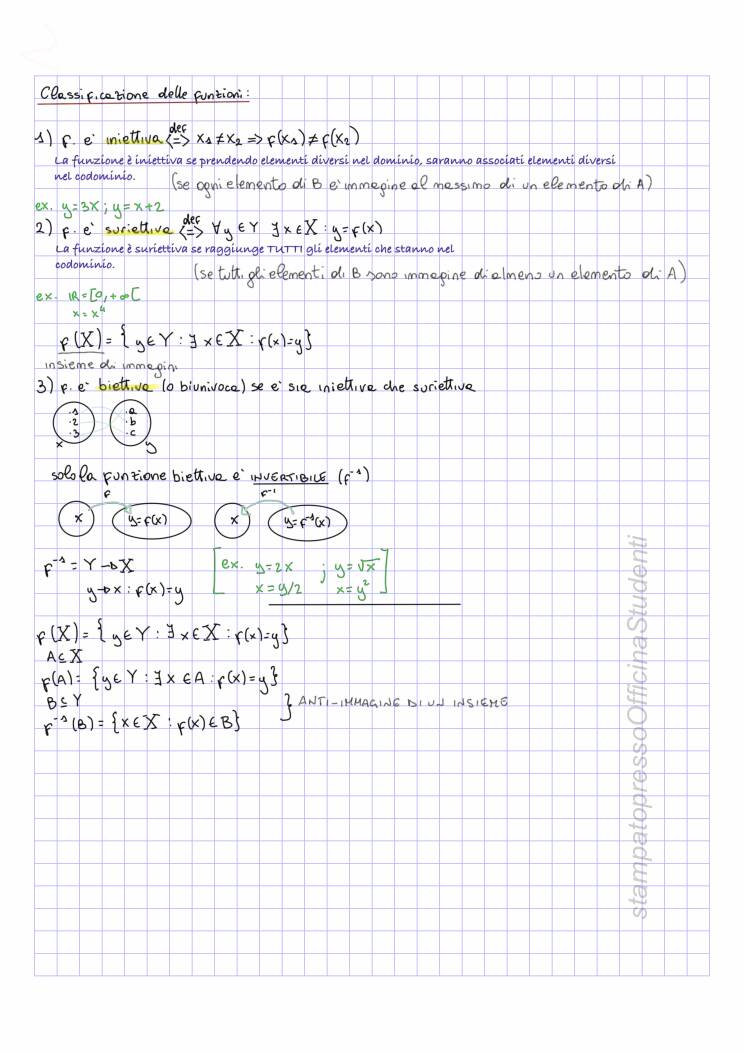 Classificazione delle funzioni:
1) f. e' iniettiva <=> def x₁ ≠ x₂ => f(x₁) ≠ f(x₂)
La funzione è iniettiva se prendendo elementi diversi nel dominio, saranno associati elementi diversi
nel codominio. (se ogni elemento di B e' immagine al massimo di un elemento di A)
ex. y=3x ; y=x+2
2) f. e' suriettiva <=> def ∀y∈Y ∃x∈X : y=f(x)
La funzione è suriettiva se raggiunge TUTTI gli elementi che stanno nel
codominio. (se tutti gli elementi di B sono immagine di almeno un elemento di A)
ex. ℝ=[0,+∞[
x=x⁴
f(X) = { y∈Y : ∃ x∈X : f(x)=y}
insieme di immagini
3) f. e' biettiva (o biunivoca) se e' sia iniettiva che suriettiva
·1 ·a
·2 ·b
·3 ·c
x y
solo la funzione biettiva e' INVERTIBILE (f⁻¹)
f f⁻¹
x y=f(x) x y=f⁻¹(x)
f⁻¹ = Y → X
y→x : f(x)=y
[ex. y=2x ; y=√x
x=y/2 x=y²]
f(X) = { y∈Y : ∃ x∈X : f(x)=y}
A⊆X
f(A) = {y∈Y : ∃ x∈A : f(x)=y}
B⊆Y
} ANTI-IMMAGINE DI UN INSIEME
f⁻¹(B) = {x∈X : f(x)∈B}
stampatopressoOfficinaStudenti